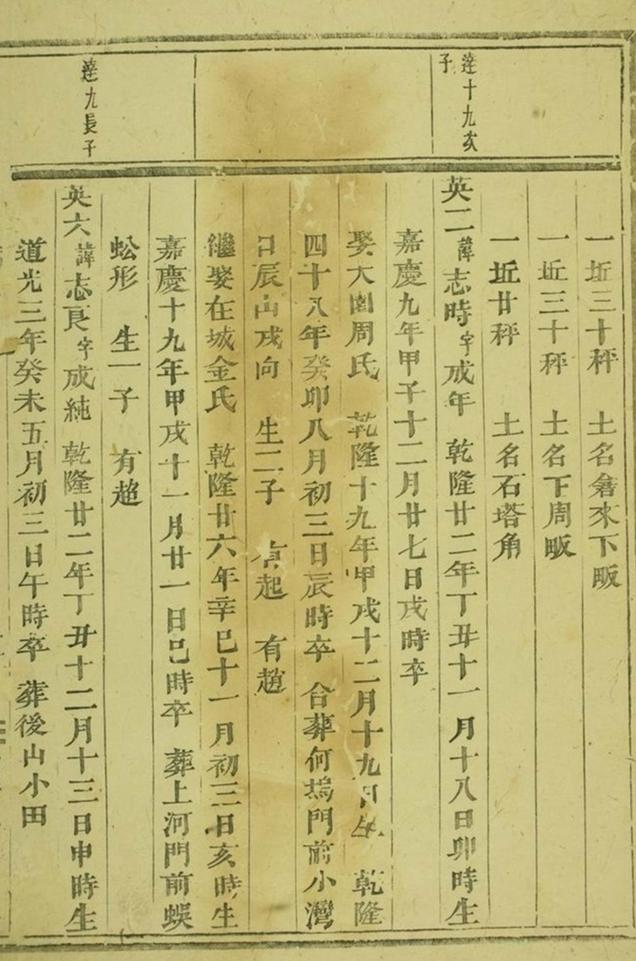 一坵三十秤　土名畲來下畈
一坵三十秤　土名下周畈
一坵廿秤　土名石塔角
達十九次子
英二諱志時字成年　乾隆廿二年丁丑十一月十八日卯時生
嘉慶九年甲子十二月廿七日戌時卒
娶大園周氏　乾隆十九年甲戌十二月十九日生　乾隆
四十八年癸卯八月初三日辰時卒　合葬何塢門前小灣
日辰山戌向　生二子　有起　有趙
繼娶在城金氏　乾隆廿六年辛巳十一月初三日亥時生
嘉慶十九年甲戌十一月廿一日巳時卒　葬上河門前蜈
蚣形　生一子　有趙
達九長子
英六諱志良字成純　乾隆廿二年丁丑十二月十三日申時生
道光三年癸未五月初三日午時卒　葬後山小田